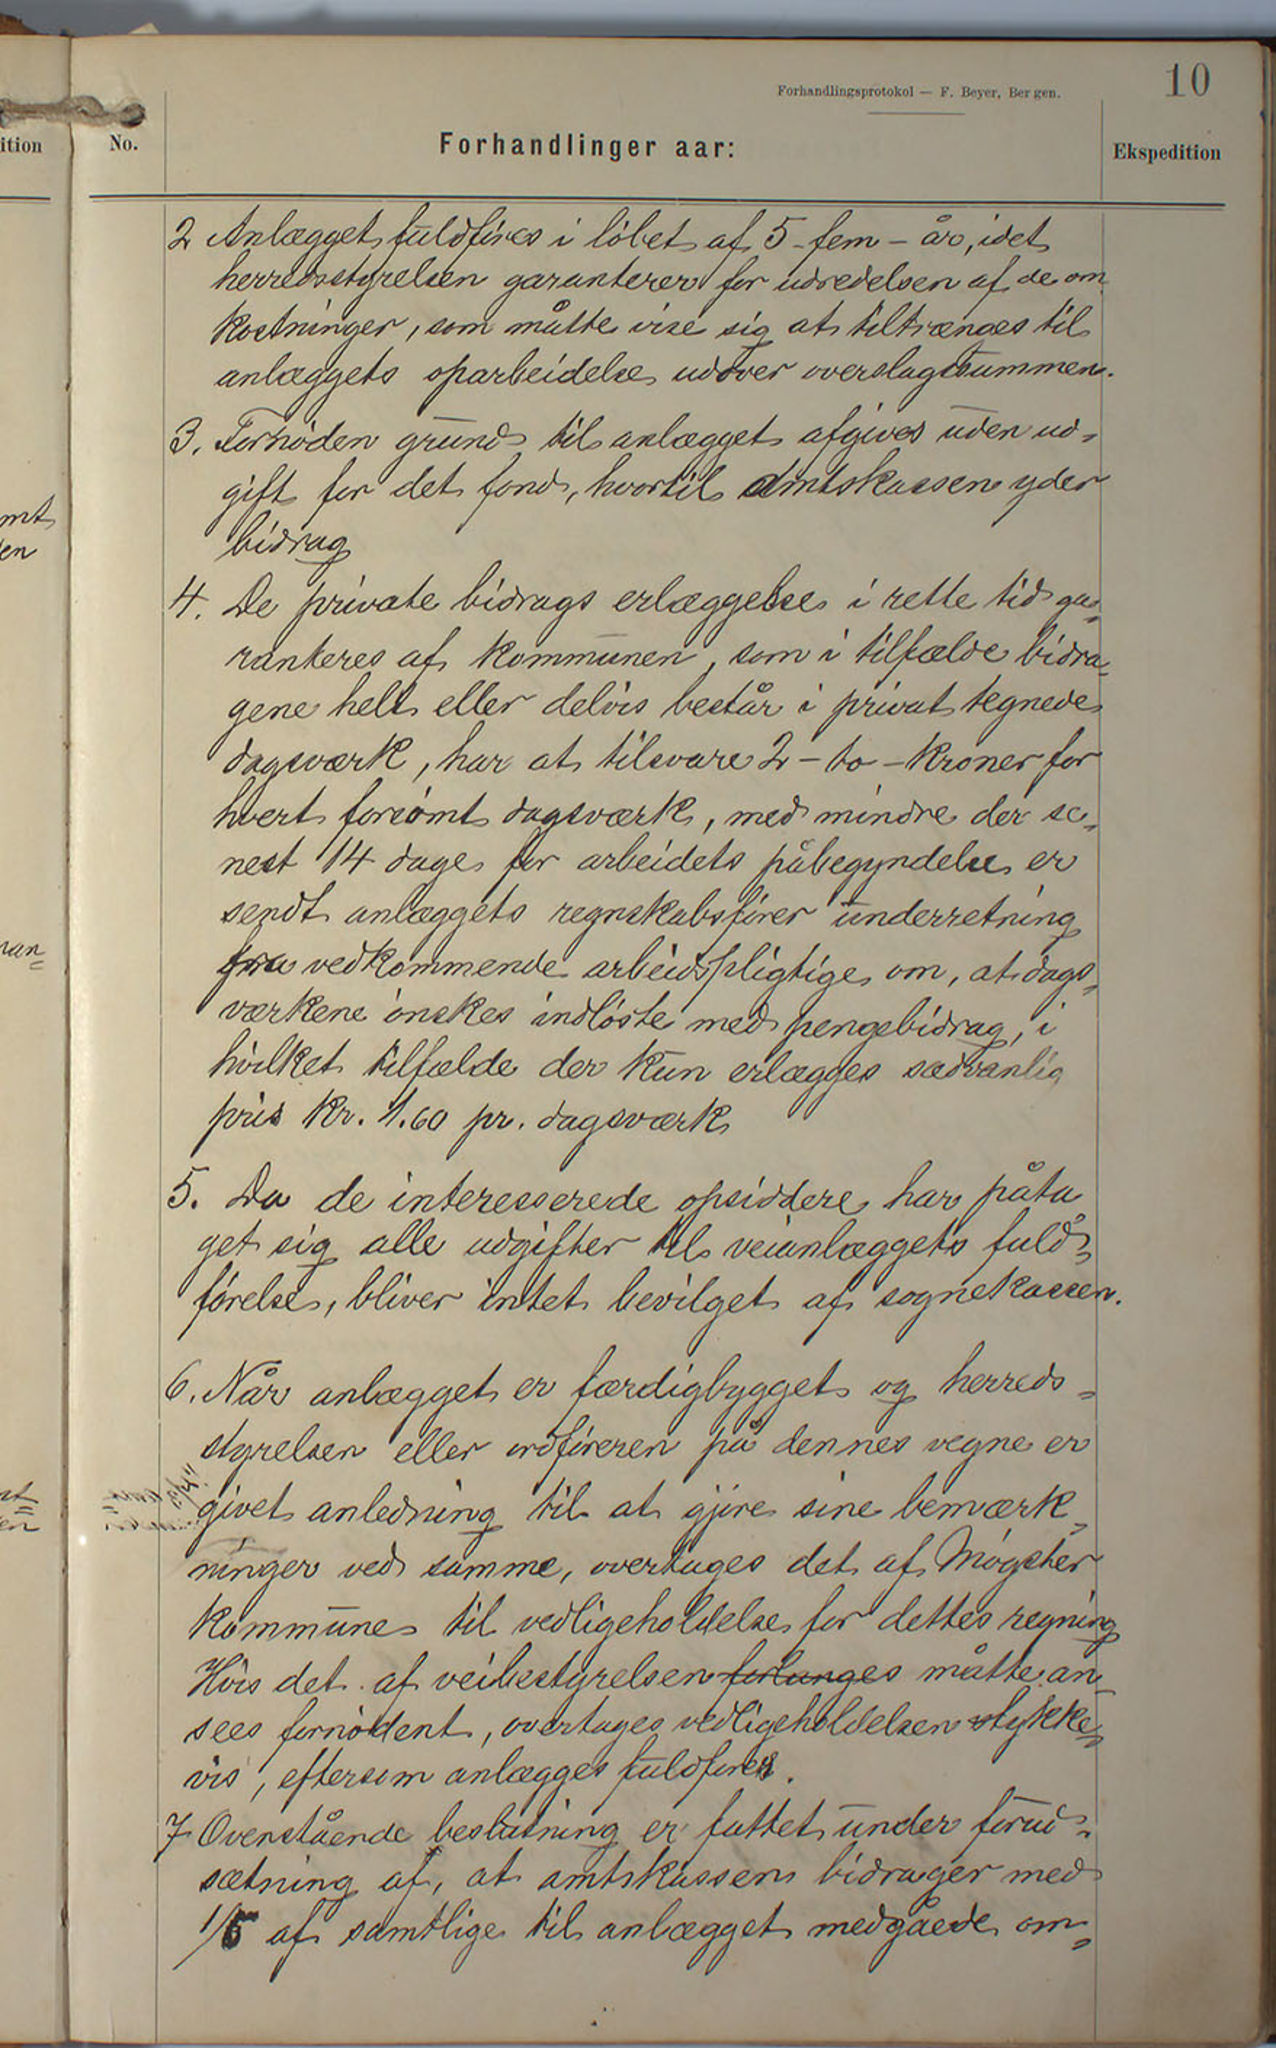 Forhandlingsprotokol — F. Beyer, Bergen.
10
ition
No.
Forhandlinger aar:
Ekspedition
2 Anlægget fuldføres i løbet af 5 - fem - år, idet
herredsstyrelsen garanterer for udredelsen af de om
kostninger, som måtte vise sig at tiltrænges til
anlæggets oparbeidelse udover overslagssummen.
3. Fornøden grund til anlægget afgives uden ud-
gift for det fond, hvortil amtskassen yder
bidrag
4. De private bidrags erlæggelse i rette tid ga-
ranteres af kommunen, som i tilfælde bidra-
gene helt eller delvis består i privat tegnede
dagsværk, har at tilsvare 2 - to - kroner for
hvert forsømt dagsværk, med mindre der se-
nest 14 dage før arbeidets påbegyndelse er
sendt anlæggets regnskabsfører underretning
fra vedkommende arbeidspligtige om, at dags-
værkene ønskes indløste med pengebidrag, i
hvilket tilfælde der kun erlægges sædvanlig
pris kr. 1.60 pr. dagsværk
5. Da de interesserede opsiddere har påta
get sig alle udgifter til veianlæggets fuld-
førelse, bliver intet bevilget af sognekassen.
6. Når anlægget er færdigbygget og herreds-
styrelsen eller ordføreren på dennes vegne er
givet anledning til at gjøre sine bemærk-
ninger ved samme, overtages det af Møgster
kommune til vedligeholdelse for dettes regning
Hvis det af veibestyrelsen forlanges måtte an-
sees fornødent, overtages vedligeholdelsen stykke-
vis, eftersom anlægges fuldføres.
7 Ovenstående beslutning er fattet under forud-
sætning af, at amtskassen bidrager med
1/5 af samtlige til anlægget medgåede om-